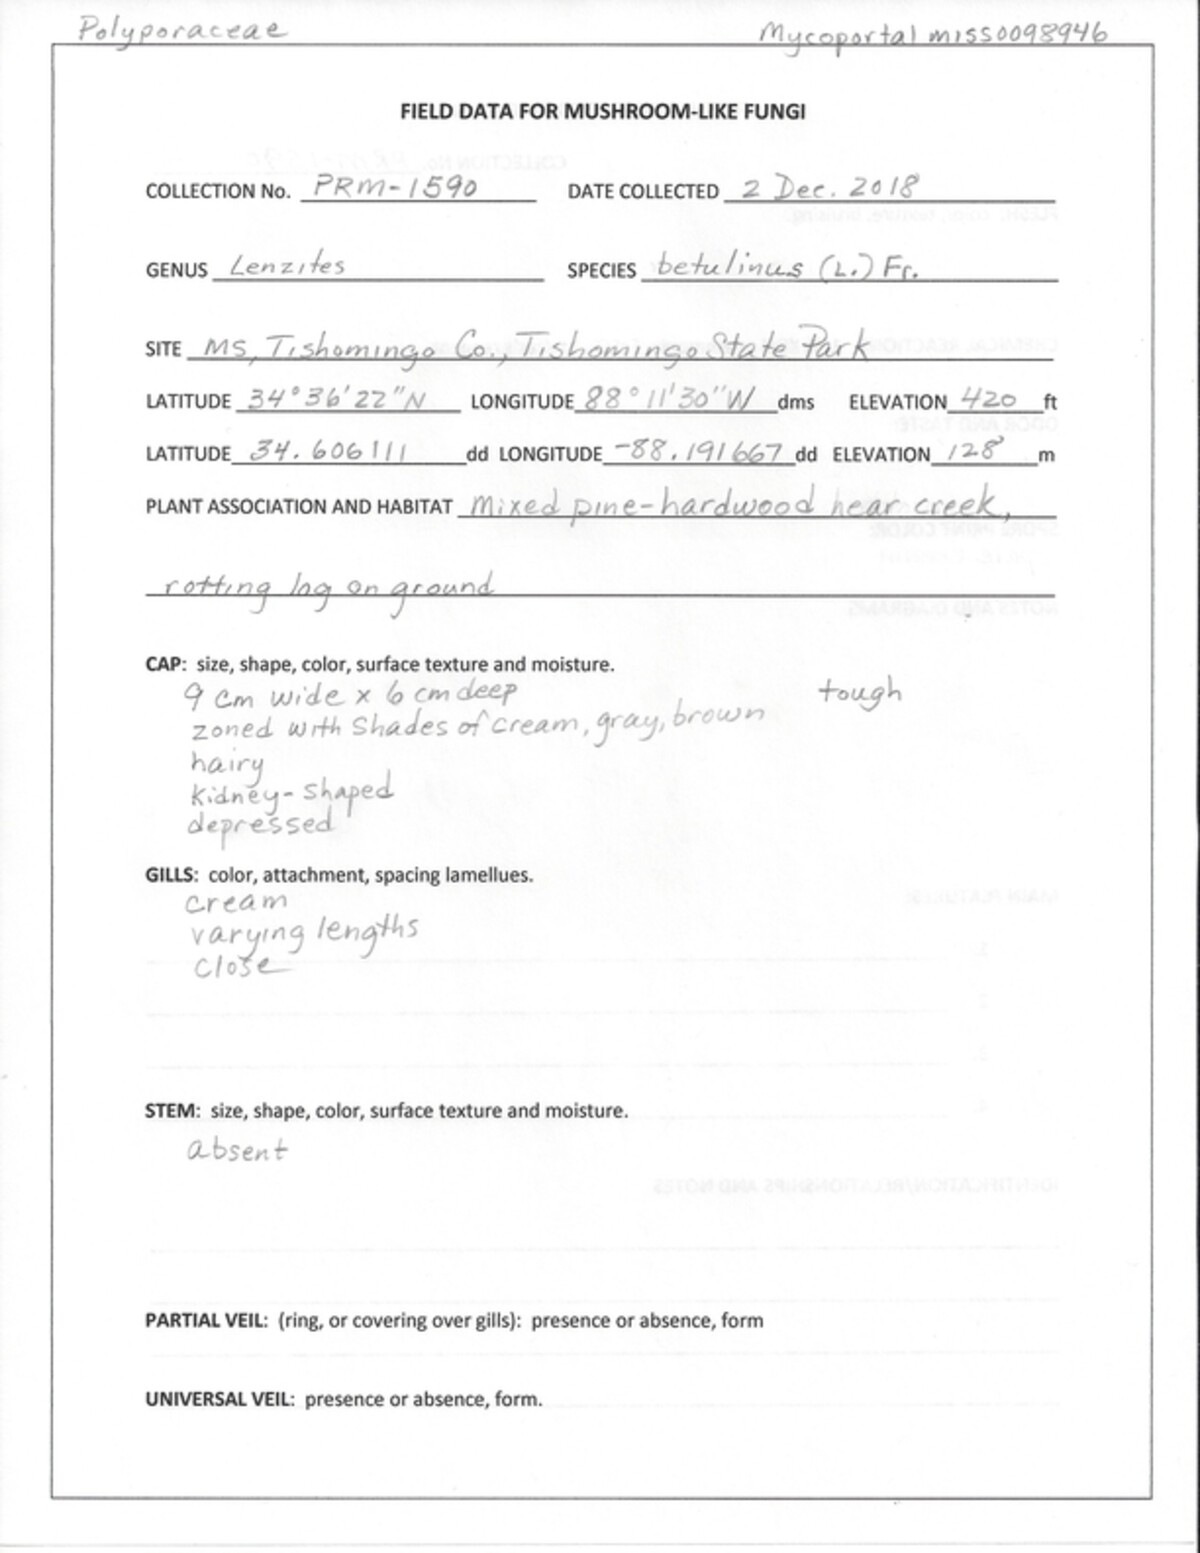 Polyporaceae Mycoportal miss0098946
FIELD DATA FOR MUSHROOM-LIKE FUNGI
COLLECTION No. PRM-1590 DATE COLLECTED 2 Dec. 2018
GENUS Lenzites SPECIES betulinus (L.) Fr.
SITE MS, Tishomingo Co., Tishomingo State Park
LATITUDE 34°36'22"N LONGITUDE 88°11'30"W dms ELEVATION 420 ft
LATITUDE 34.606111 dd LONGITUDE -88.191667 dd ELEVATION 128 m
PLANT ASSOCIATION AND HABITAT Mixed pine-hardwood near creek,
rotting log on ground
CAP: size, shape, color, surface texture and moisture.
9 cm wide x 6 cm deep tough
zoned with shades of cream, gray, brown
hairy
kidney-shaped
depressed
GILLS: color, attachment, spacing lamellues.
cream
varying lengths
close
STEM: size, shape, color, surface texture and moisture.
absent
PARTIAL VEIL: (ring, or covering over gills): presence or absence, form
UNIVERSAL VEIL: presence or absence, form.